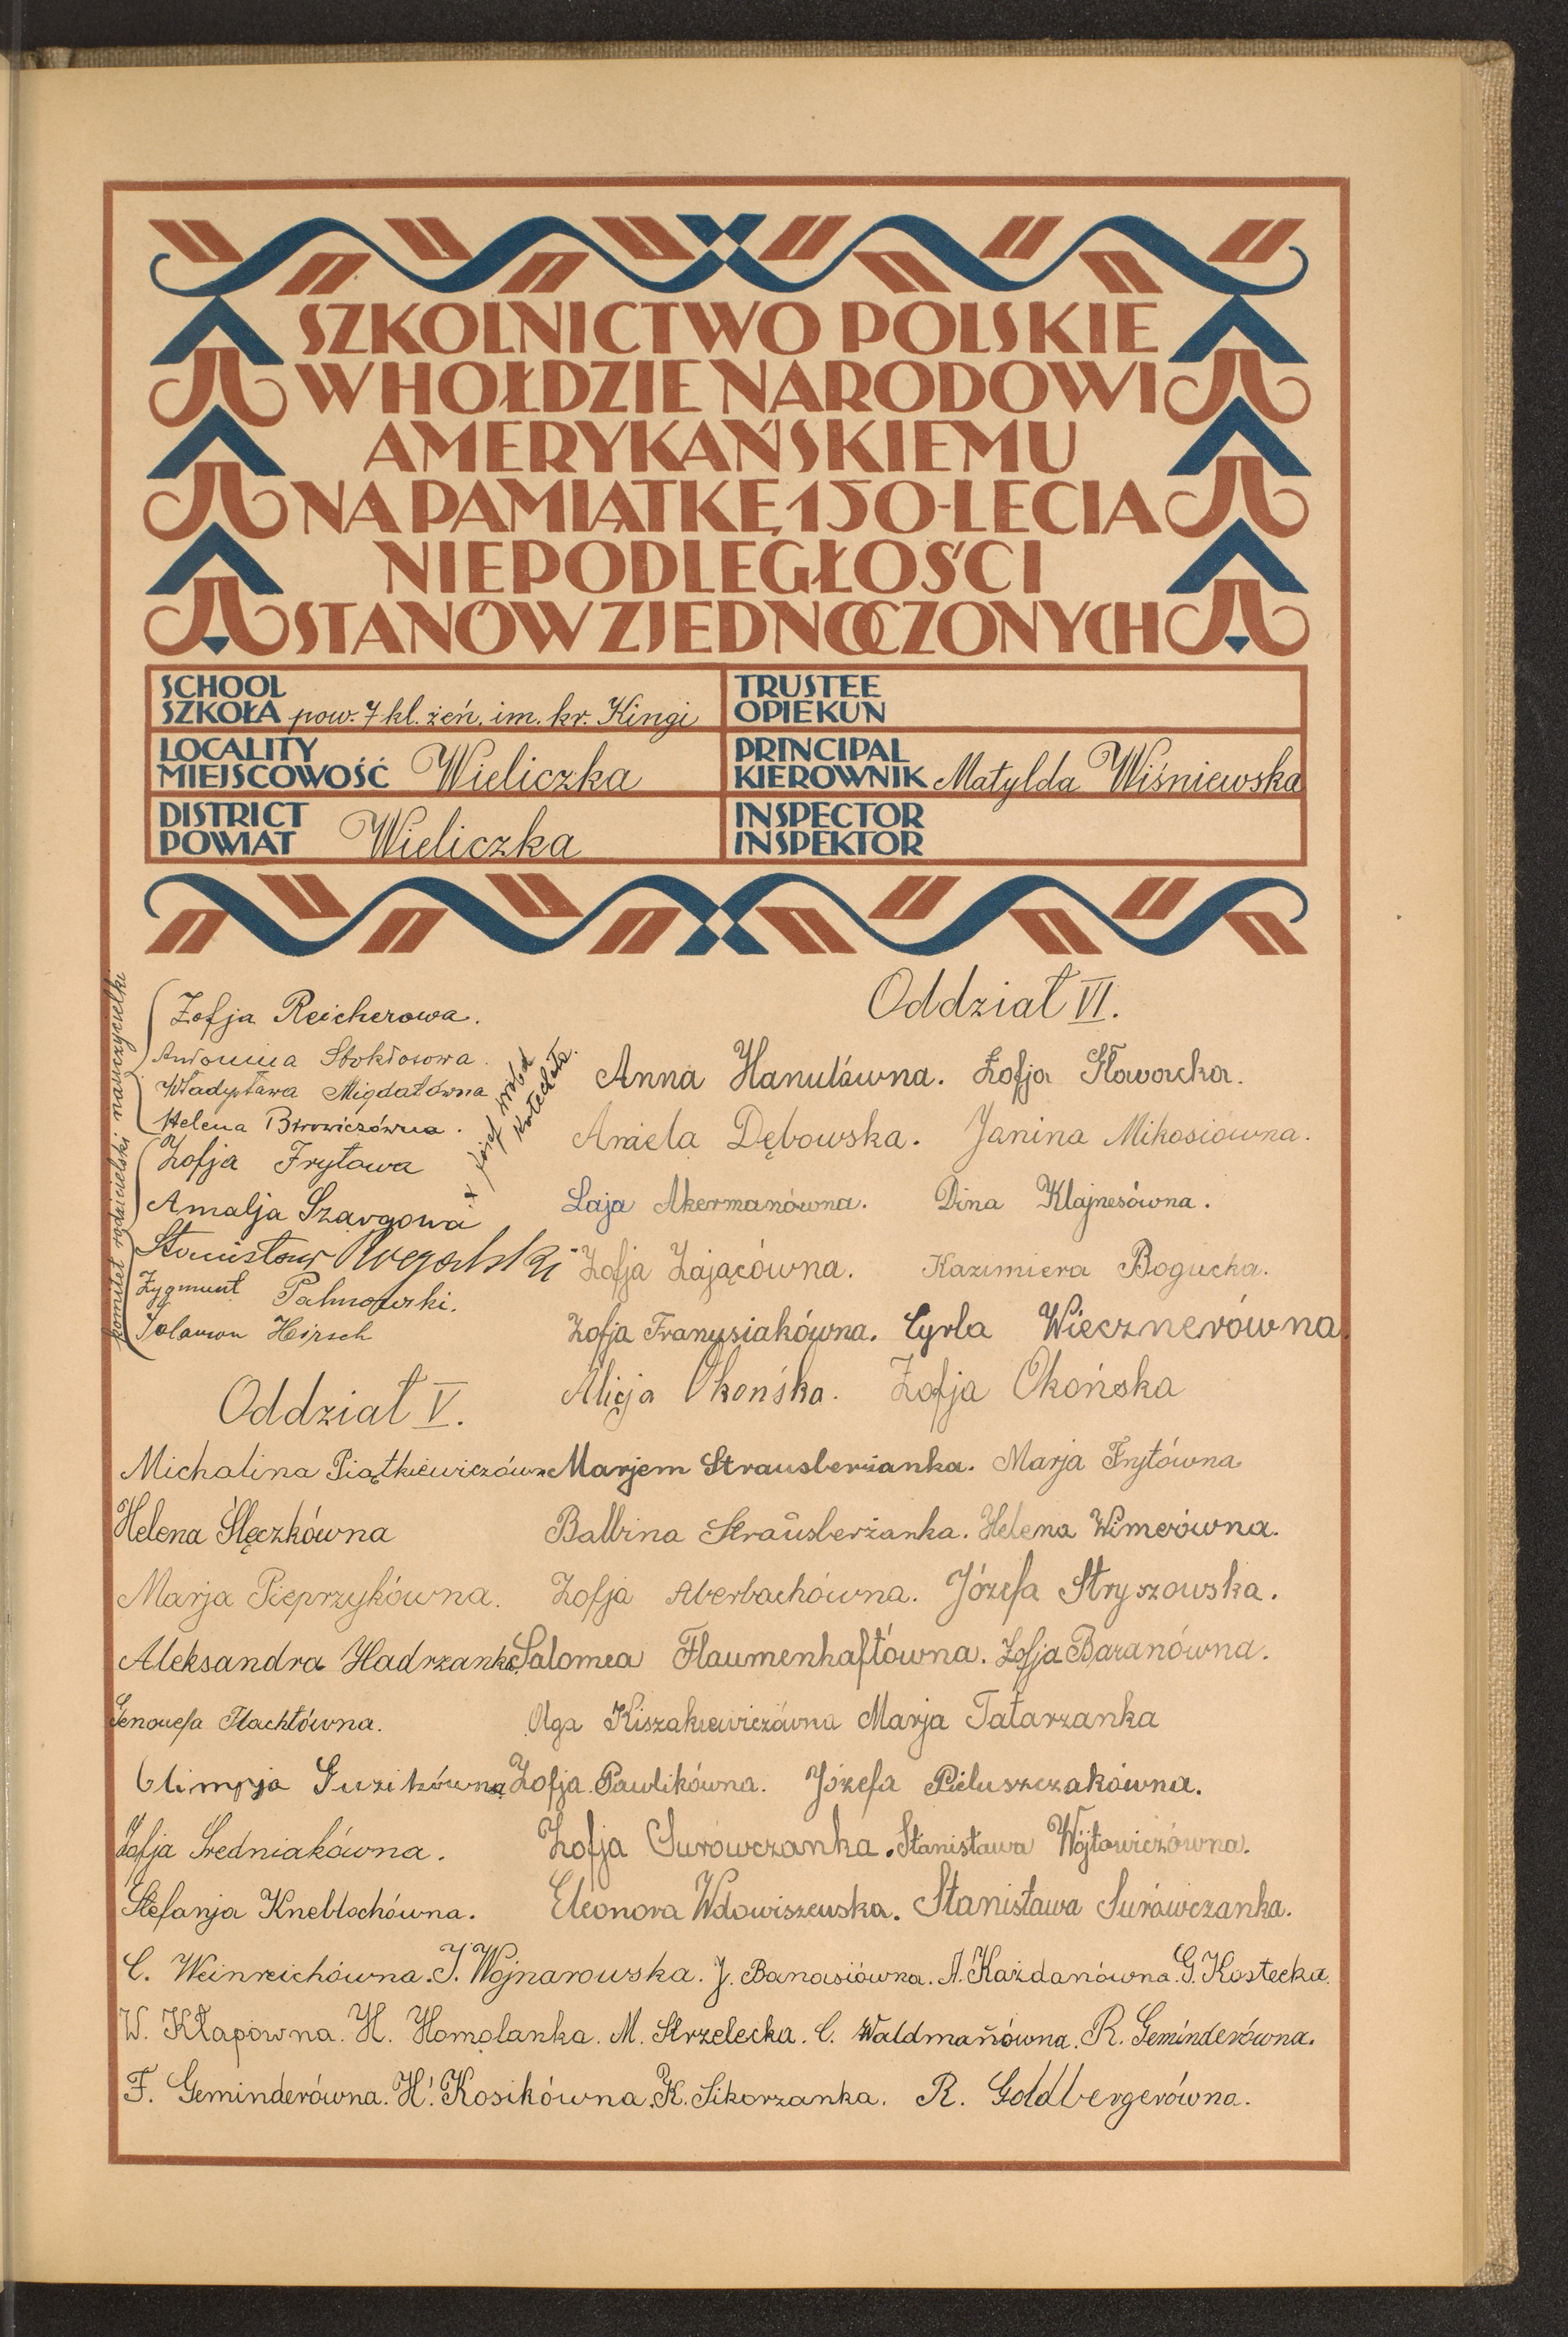 SZKOLNICTWO POLSKIE
W HOŁDZIE NARODOWI
AMERYKAŃSKIEMU
NA PAMIĄTKĘ 150-LECIA
NIEPODLEGŁOŚCI
STANÓW ZJEDNOCZONYCH
SCHOOL
SZKOŁA pow. 7 kl. żeń. im. kr. Kingi
TRUSTEE
OPIEKUN
LOCALITY
MIEJSCOWOŚĆ Wieliczka
PRINCIPAL
KIEROWNIK Matylda Wiśniewska
DISTRICT
POWIAT Wieliczka
INSPECTOR
INSPEKTOR
nauczycielki
Zofja Reicherowa.
Antonina Stokłosowa.
Władysława Migdałówna
Helena Birowiczówna.
Józef Wróbel
Katecheta.
komitet rodzicielski
Zofja Frytowa
Amalja Szargowa
Stanisław
Zygmunt Palmowski.
Hirsch
Oddział V.
Michalina Piątkiewiczówna
Helena Ślęczkówna
Marja Pieprzykówna.
Aleksandra Hadrzanka.
Genowefa Flachtówna.
Olimpja Guzikówna
Zofja Średniakówna.
Stefanja Knebłochówna.
Oddział VI.
Anna Hanulówna. Zofja Sławacka.
Aniela Dębowska. Janina Mikosiówna.
Laja Akermanówna. Dina Klajnesówna.
Zofja Zającówna. Kazimiera Bogucka.
Zofja Franusiakówna. Cyrla Wiecznerówna
Alicja Okońska. Zofja Okońska
Marjem Strausberżanka. Marja Frytówna
Balbina Straŭsberżanka. Helena Wimerówna.
Zofja Aberbachówna. Józefa Stryszowska.
Salomea Flaumenhaftówna. Zofja Baranówna.
Olga Kiszakiewiczówna Marja Tatarzanka
Zofja Pawlikówna. Józefa Pieluszczakówna.
Zofja Surówczanka. Stanisława Wójtowiczówna.
Eleonora Wdowiszewska. Stanisława Surówczanka.
C. Weinreichówna. J. Wojnarowska. J. Banasiówna. A. Każdanówna. G. Kostecka.
W. Kłapówna. H. Homolanka. M. Strzelecka. C. Waldmanówna. R. Geminderówna.
F. Geminderówna. H. Kosikówna. K. Sikorzanka. R. Goldbergerówna.